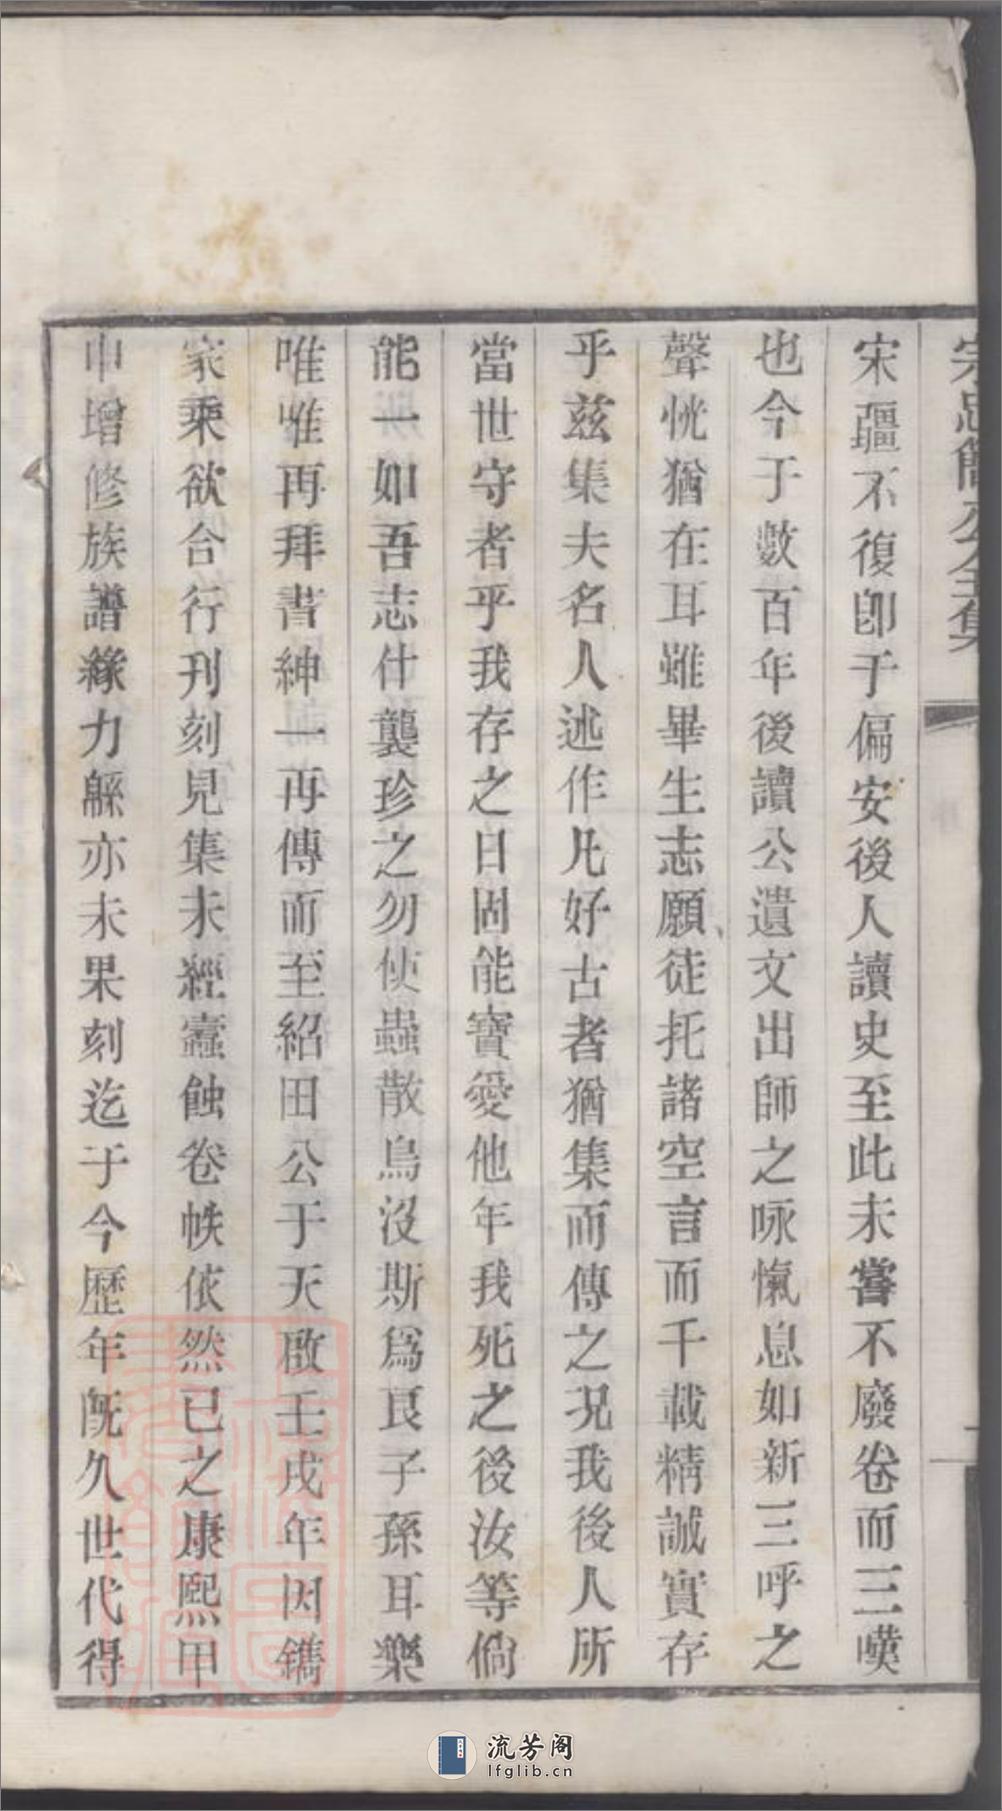 宗忠簡公全集
宋疆不復卽于偏安後人讀史至此未嘗不廢卷而三嘆
也今于數百年後讀公遺文出師之咏愾息如新三呼之
聲恍猶在耳雖畢生志願徒托諸空言而千載精誠實存
乎兹集夫名人述作凡好古者猶集而傳之況我後人所
當世守者乎我存之日固能寶愛他年我死之後汝等倘
能一如吾志什襲珍之勿使蟲散烏沒斯爲良子孫耳樂
唯唯再拜書紳一再傳而至紹田公于天啟壬戌年因鐫
家乘欲合行刊刻見集未經蠹蝕卷帙依然已之康熙甲
申增修族譜緣力緜亦未果刻迄于今歷年旣久世代得
流芳阁
lfglib.cn